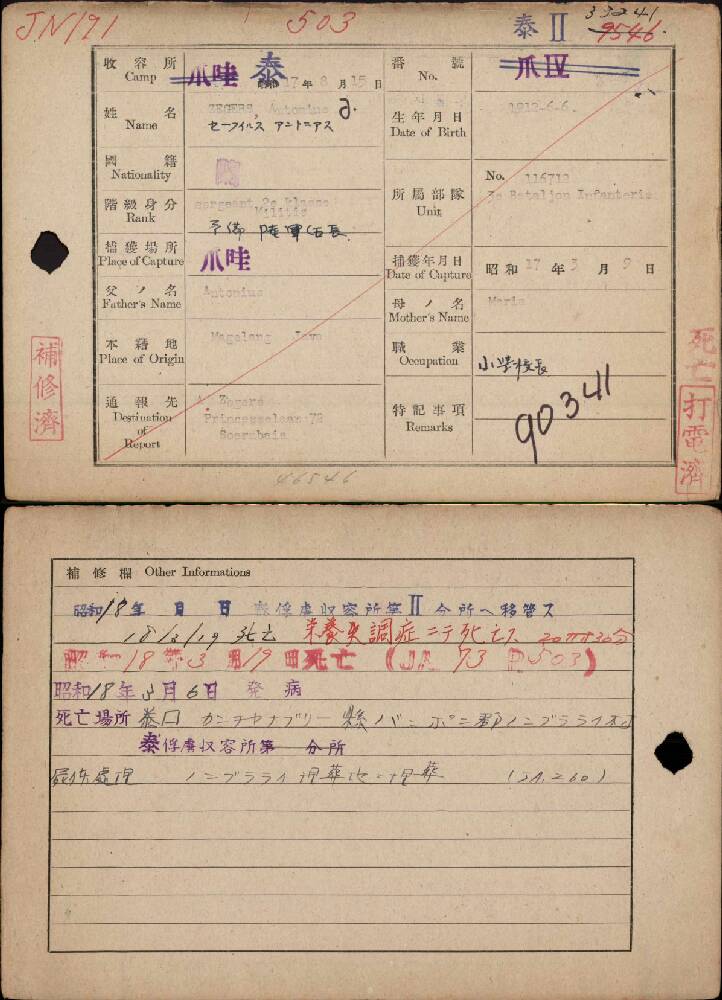 JN191
503
泰 II
33241
9546.
收容所 Camp
爪哇 泰
昭和 17 年 8 月 15 日
番號 No.
爪 IV
姓名 Name
ZEGERS, Antonius
セーフイルス アントニアス
生年月日 Date of Birth
1912-6-6.
國籍 Nationality
蘭
階級身分 Rank
sergeant 2e klasse
Militie
予備 陸軍伍長
所屬部隊 Unit
No. 116712
3e Bataljon Infanterie
捕獲場所 Place of Capture
爪哇
捕獲年月日 Date of Capture
昭和 17 年 3 月 9 日
父ノ名 Father's Name
Antonius
母ノ名 Mother's Name
Maria
本籍地 Place of Origin
Magelang Java
職業 Occupation
小学校長
通報先 Destination of Report
A. Zegers
Princesselaan 72
Soerabaia
特記事項 Remarks
90341
補修濟
死亡
打電濟
46546
補修欄 Other Informations
昭和18年 月 日 泰俘虜収容所第 II 分所ヘ移管ス
18/3/19 死亡 栄養失調症ニテ死亡ス 20時30分
昭和18年3月19日死亡 (JA 73 P 503)
昭和18年3月6日 発病
死亡場所 泰国 カンチヤナブリー縣 バンポニ郡 ノンプラライ村
泰俘虜収容所第 分所
屍体處理 ノンプラライ埋葬地ニ埋葬 (JA.260)